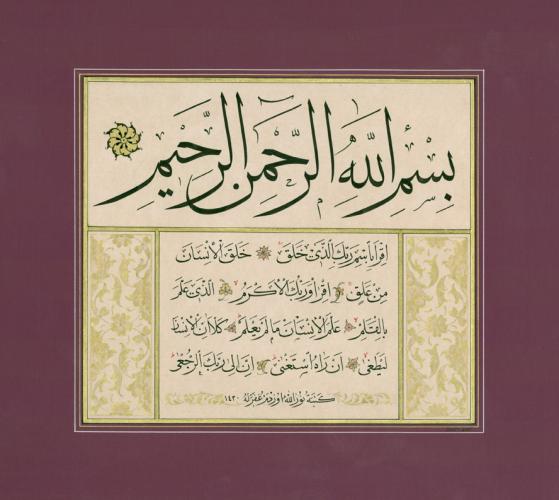 بِسْمِ اللهِ الرَّحْمنِ الرَّحِيمِ
اِقْرَأْ بِاسْمِ رَبِّكَ الَّذِي خَلَقَ خَلَقَ الْاِنْسَانَ
مِنْ عَلَقٍ اِقْرَأْ وَرَبُّكَ الْاَكْرَمُ الَّذِي عَلَّمَ
بِالْقَلَمِ عَلَّمَ الْاِنْسَانَ مَا لَمْ يَعْلَمْ كَلَّا اِنَّ الْاِنْسَانَ
لَيَطْغٰى اَنْ رَاٰهُ اسْتَغْنٰى اِنَّ اِلٰى رَبِّكَ الرُّجْعٰى
كتبه نورالله اوزدم غفرله ١٤٣٠